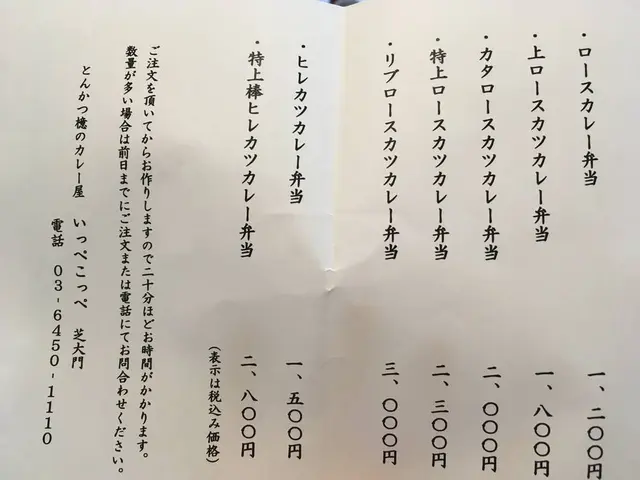 ・ロースカレー弁当　一、二〇〇円
・上ロースカツカレー弁当　一、八〇〇円
・カタロースカツカレー弁当　二、〇〇〇円
・特上ロースカツカレー弁当　二、三〇〇円
・リブロースカツカレー弁当　三、〇〇〇円
・ヒレカツカレー弁当　一、五〇〇円
・特上棒ヒレカツカレー弁当　二、八〇〇円
（表示は税込み価格）
ご注文を頂いてからお作りしますので二十分ほどお時間がかかります。
数量が多い場合は前日までにご注文または電話にてお問合わせください。
とんかつ檍のカレー屋　いっぺこっぺ　芝大門
電話　03-6450-1110